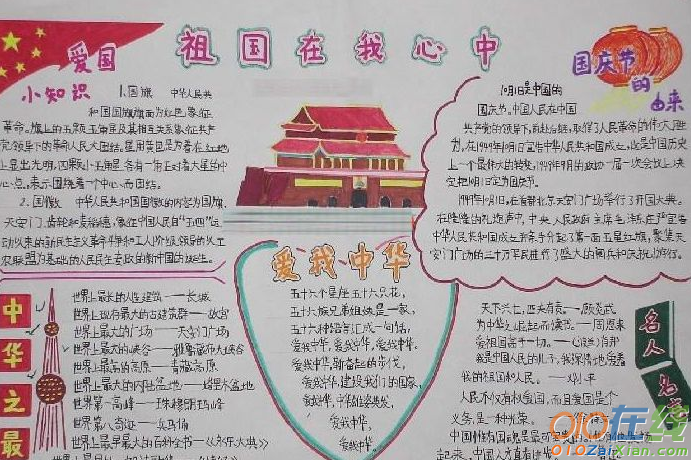 祖国在我心中
爱国
小知识
1.国旗 中华人民共
和国国旗旗面为红色,象征
革命。旗上的五颗五角星及其相互关系象征共产
党领导下的革命人民大团结。星用黄色是为着在红地
上显出光明,四颗小五角星各有一角正对着大星的中
心点,表示围绕着一个中心而团结。
2.国徽 中华人民共和国国徽的内容为国旗、
天安门、齿轮和麦稻穗,象征中国人民自“五四”运
动以来的新民主主义革命斗争和工人阶级领导的以工
农联盟为基础的人民民主专政的新中国的诞生。
国庆节
的
由来
10月1日是中国的
国庆节。中国人民在中国
共产党的领导下,前赴后继,取得了人民革命的伟大胜
利,在1949年10月1日宣告中华人民共和国成立,这是中国历史
上一个最伟大的转变,1949年9月的政协一届一次会议上决
定把10月1日定为国庆节。
1949年10月1日,在首都北京天安门广场举行了开国大典。
在隆隆的礼炮声中,中央人民政府主席毛泽东庄严宣告
中华人民共和国成立并亲手升起了第一面五星红旗,聚集天
安门广场的三十万军民进行了盛大的阅兵和庆祝游行。
中华之最
世界上最长的人造建筑——长城
世界上现存最大的古建筑群——故宫
世界上最大的广场——天安门广场
世界上最大的峡谷——雅鲁藏布大峡谷
世界上最高的高原——青藏高原
世界上最大的内陆盆地——塔里木盆地
世界第一高峰——珠穆朗玛峰
世界第八奇迹——兵马俑
世界上最早最大的百科全书——《永乐大典》
爱我中华
五十六个星座五十六只花,
五十六族兄弟姐妹是一家,
五十六种语言汇成一句话,
爱我中华,爱我中华,爱我中华。
爱我中华,健奋起的步伐,
爱我中华,建设我们的国家,
爱我中华,
爱我中华,
爱我中华。
名人名言
天下兴亡,匹夫有责。——顾炎武
为中华之崛起而读书。——周恩来
爱祖国高于一切。——肖邦
我是中国人民的儿子,我深情地爱着
我的祖国和人民。——邓小平
人民不仅有权爱国,而且爱国是个
义务,是一种光荣。
010在线
010zaixian.com